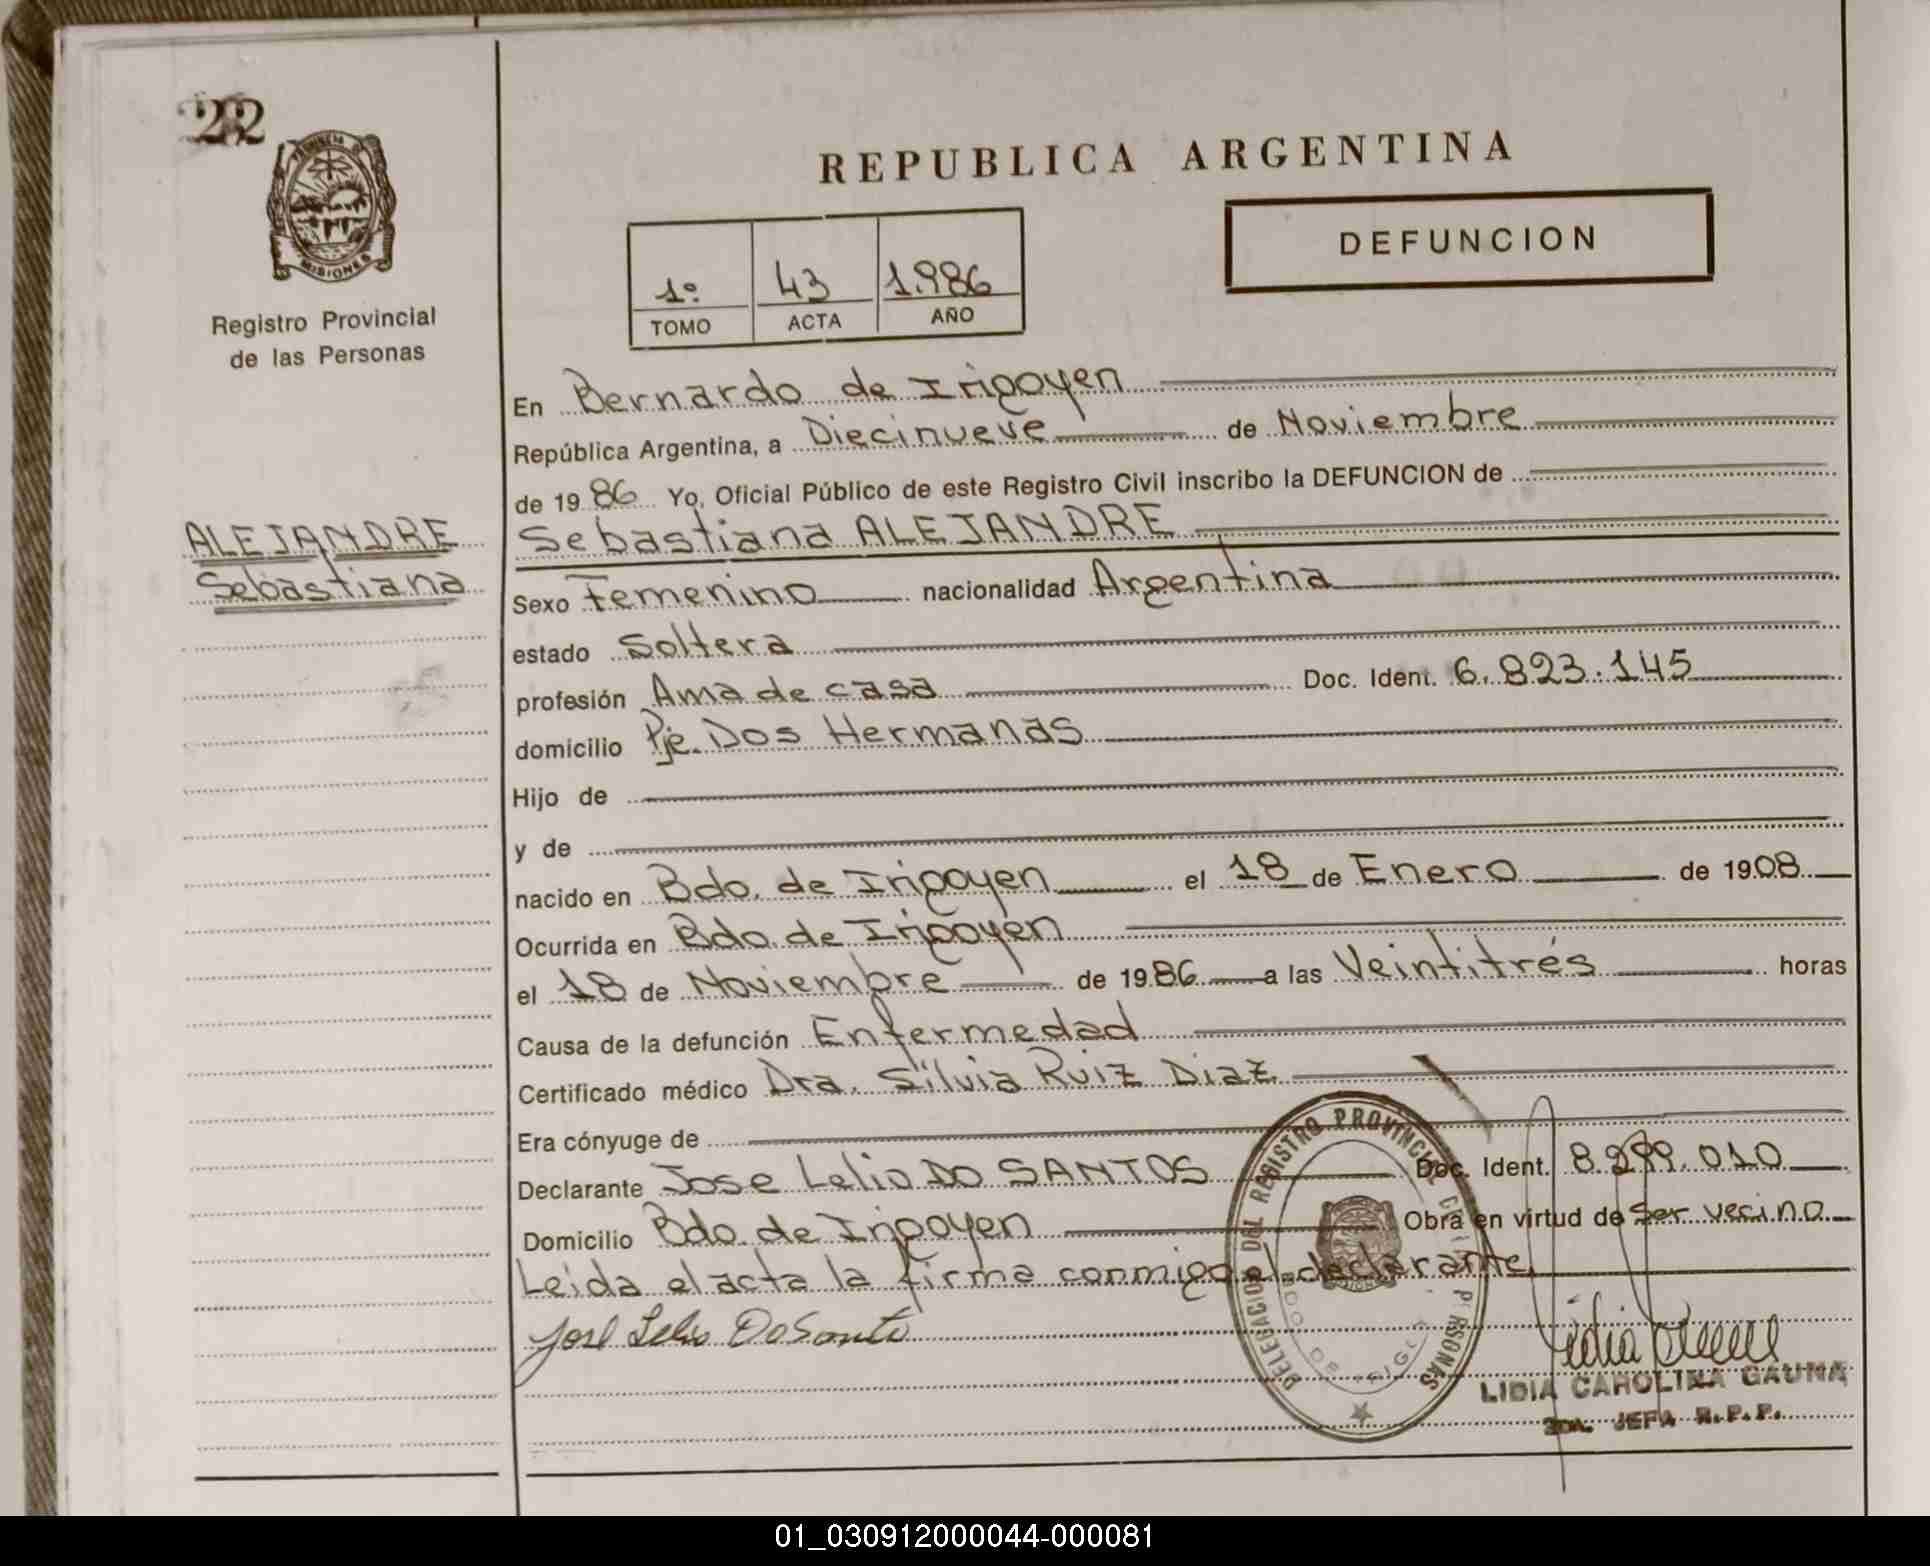 22
PROVINCIA DE
MISIONES
Registro Provincial
de las Personas
REPUBLICA ARGENTINA
DEFUNCION
1º 43 1.986
TOMO ACTA AÑO
En Bernardo de Irigoyen
República Argentina, a Diecinueve de Noviembre
de 1986 Yo, Oficial Público de este Registro Civil inscribo la DEFUNCION de
ALEJANDRE
Sebastiana
Sebastiana ALEJANDRE
Sexo Femenino nacionalidad Argentina
estado Soltera
profesión Ama de casa Doc. Ident. 6.823.145
domicilio Pje. Dos Hermanas
Hijo de
y de
nacido en Bdo. de Irigoyen el 18 de Enero de 1908
Ocurrida en Bdo. de Irigoyen
el 18 de Noviembre de 1986 a las Veintitrés horas
Causa de la defunción Enfermedad
Certificado médico Dra. Silvia Ruiz Diaz
Era cónyuge de
Declarante Jose Lelio DO SANTOS Doc. Ident. 8.299.010
Domicilio Bdo. de Irigoyen Obra en virtud de Ser vecino
Leida el acta la firma conmigo el declarante
DELEGACION DEL REGISTRO PROVINCIAL DE PERSONAS
BDO DE IRIGOYEN
LIDIA CAROLINA GAUNA
JEFA R.P.P.
01_030912000044-000081